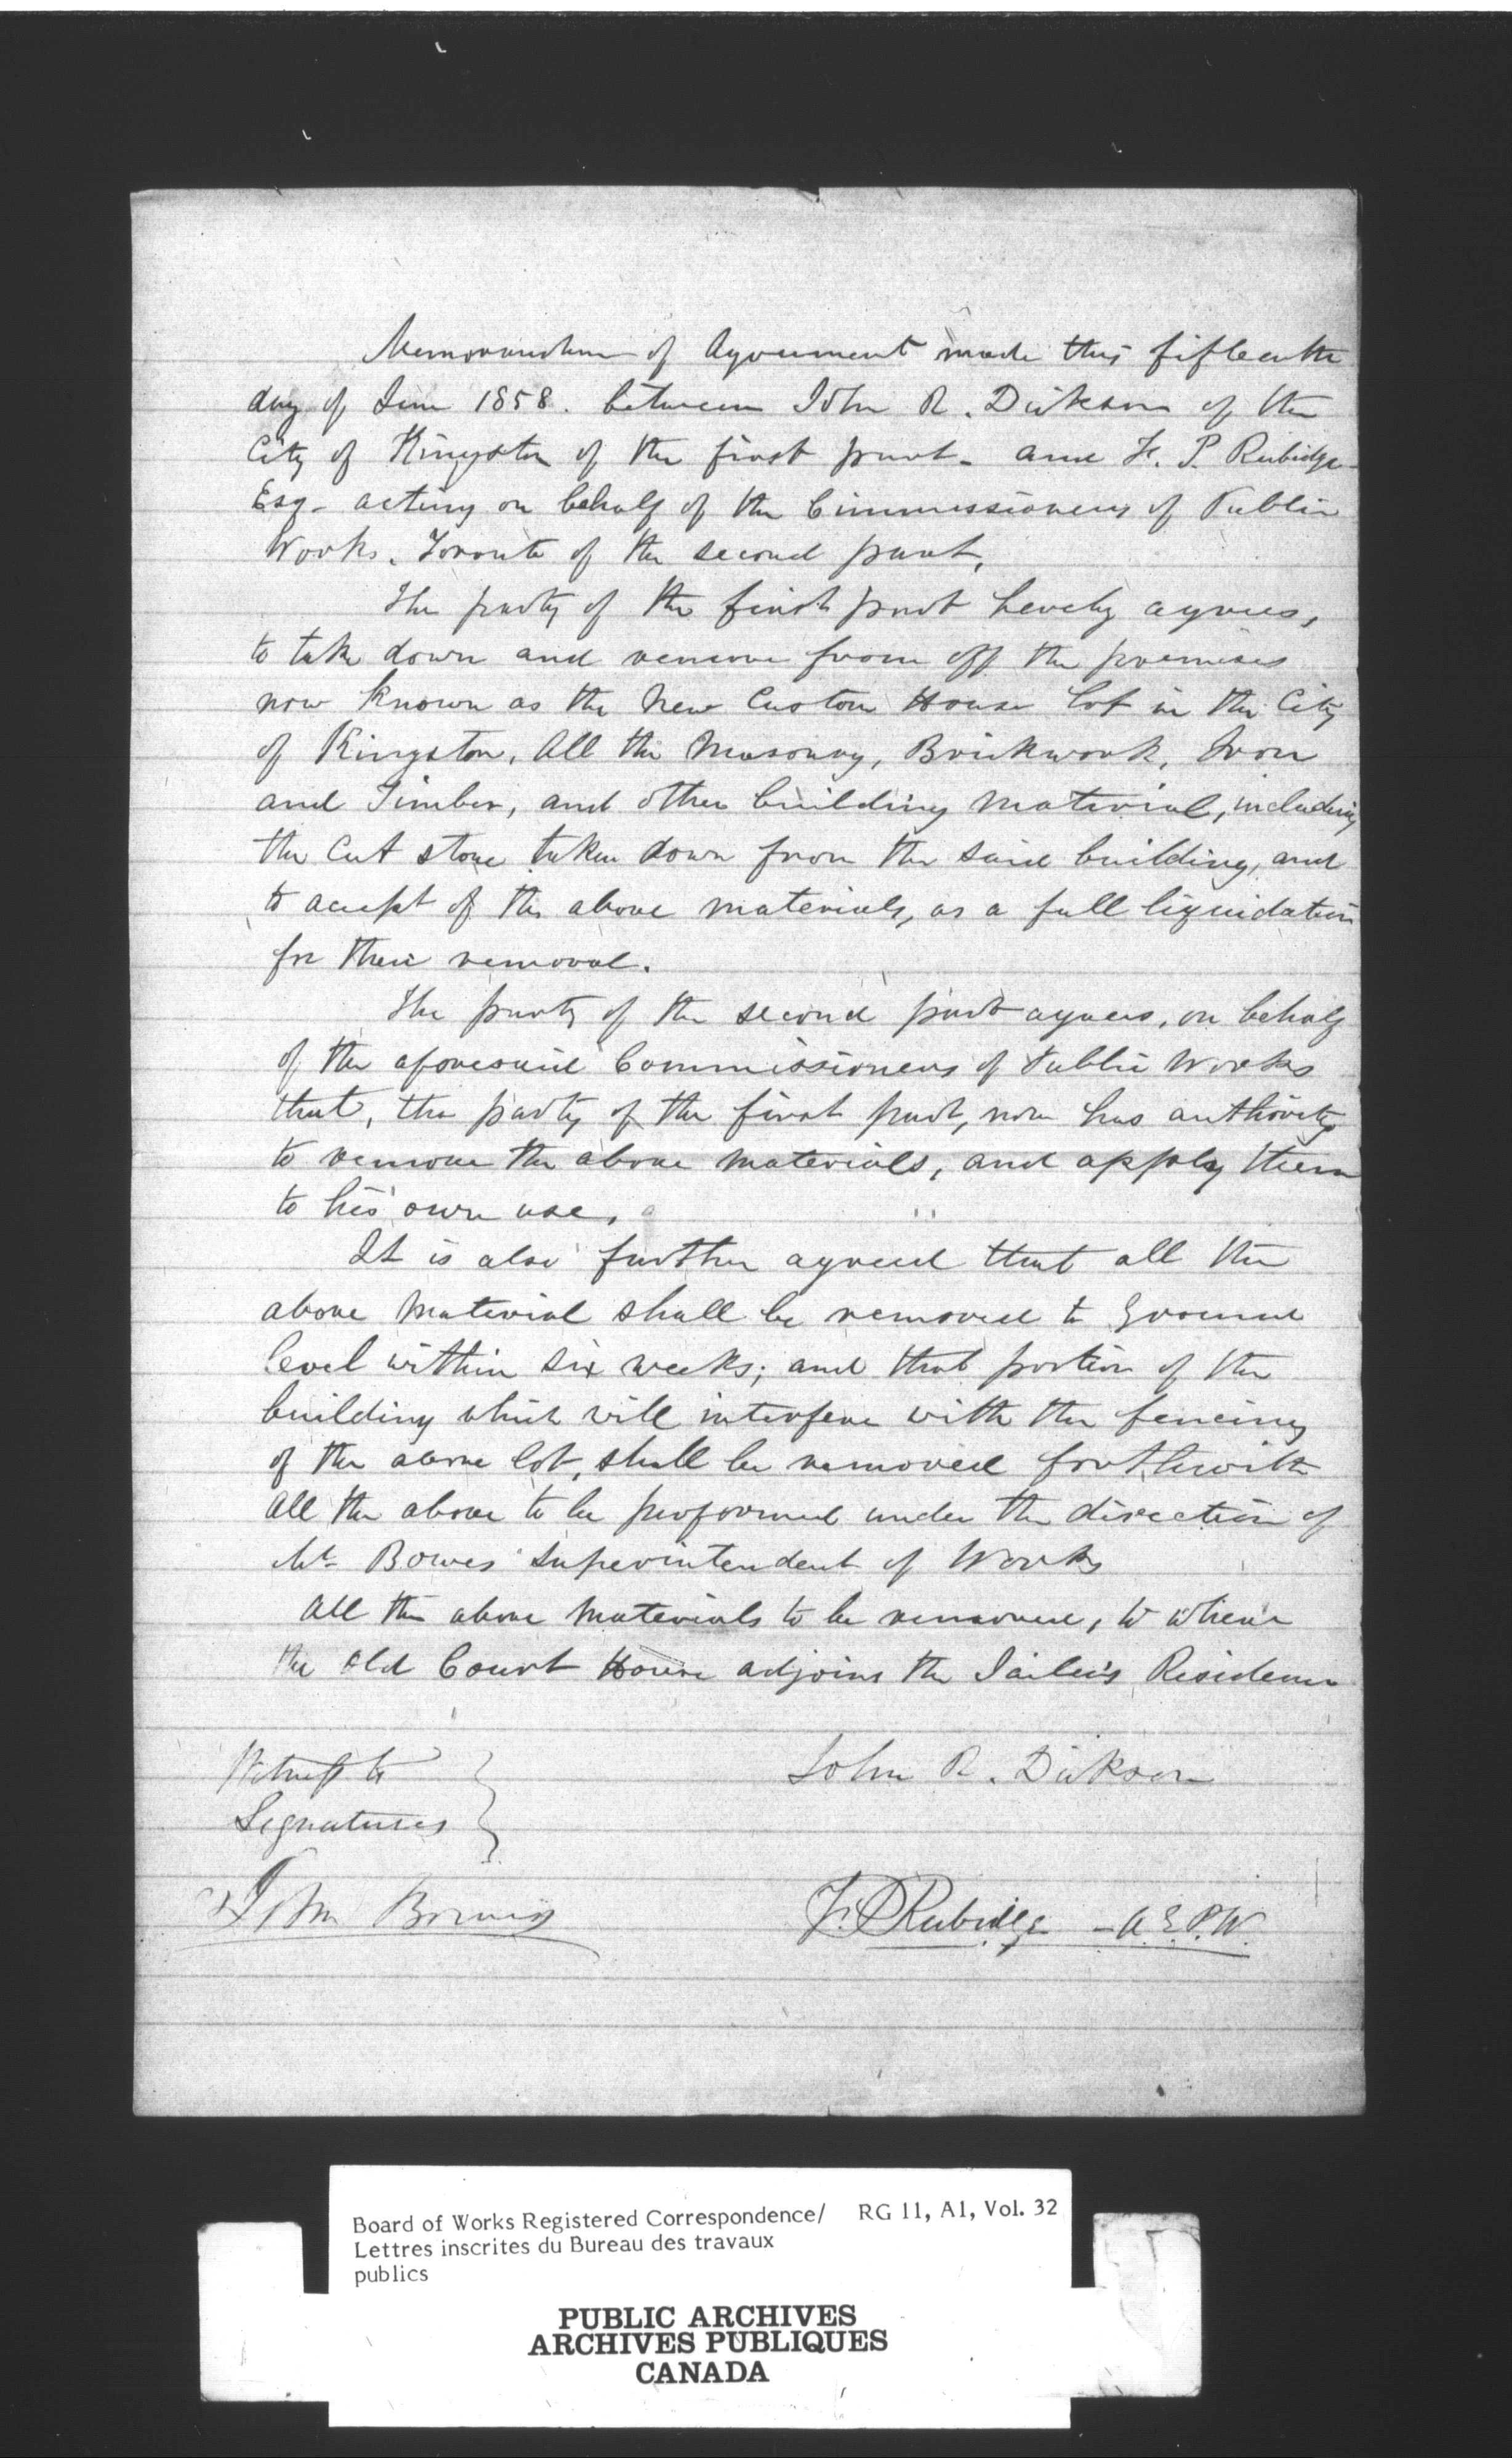 Memorandum of Agreement made this fifteenth
day of June 1858. between John R. Dickson of the
City of Kingston of the first part - and F. P. Rubidge
Esq - acting on behalf of the Commissioners of Public
Works. Toronto of the second part,
The party of the first part hereby agrees,
to take down and remove from off the premises
now known as the New Custom House lot in the City
of Kingston, All the Masonry, Brickwork, Iron
and Timber, and other building Material, including
the Cut stone taken down from the said building, and
to accept of the above materials, as a full liquidation
for their removal.
The party of the second part agrees, on behalf
of the aforesaid Commissioners of Public Works
that, the party of the first part, now has authority
to remove the above materials, and apply them
to his own use,
It is also further agreed that all the
above Material shall be removed to Ground
level within six weeks; and that portion of the
building which will interfere with the fencing
of the above lot, shall be removed forthwith
All the above to be performed under the direction of
Mr Bowes Superintendent of Works
All the above Materials to be removed, to where
the Old Court House adjoins the Jailer's Residence
Witness to
Signatures
John R. Dickson
John Bowes
F. P. Rubidge - A.E.P.W.
Board of Works Registered Correspondence/ RG 11, A1, Vol. 32
Lettres inscrites du Bureau des travaux
publics
PUBLIC ARCHIVES
ARCHIVES PUBLIQUES
CANADA